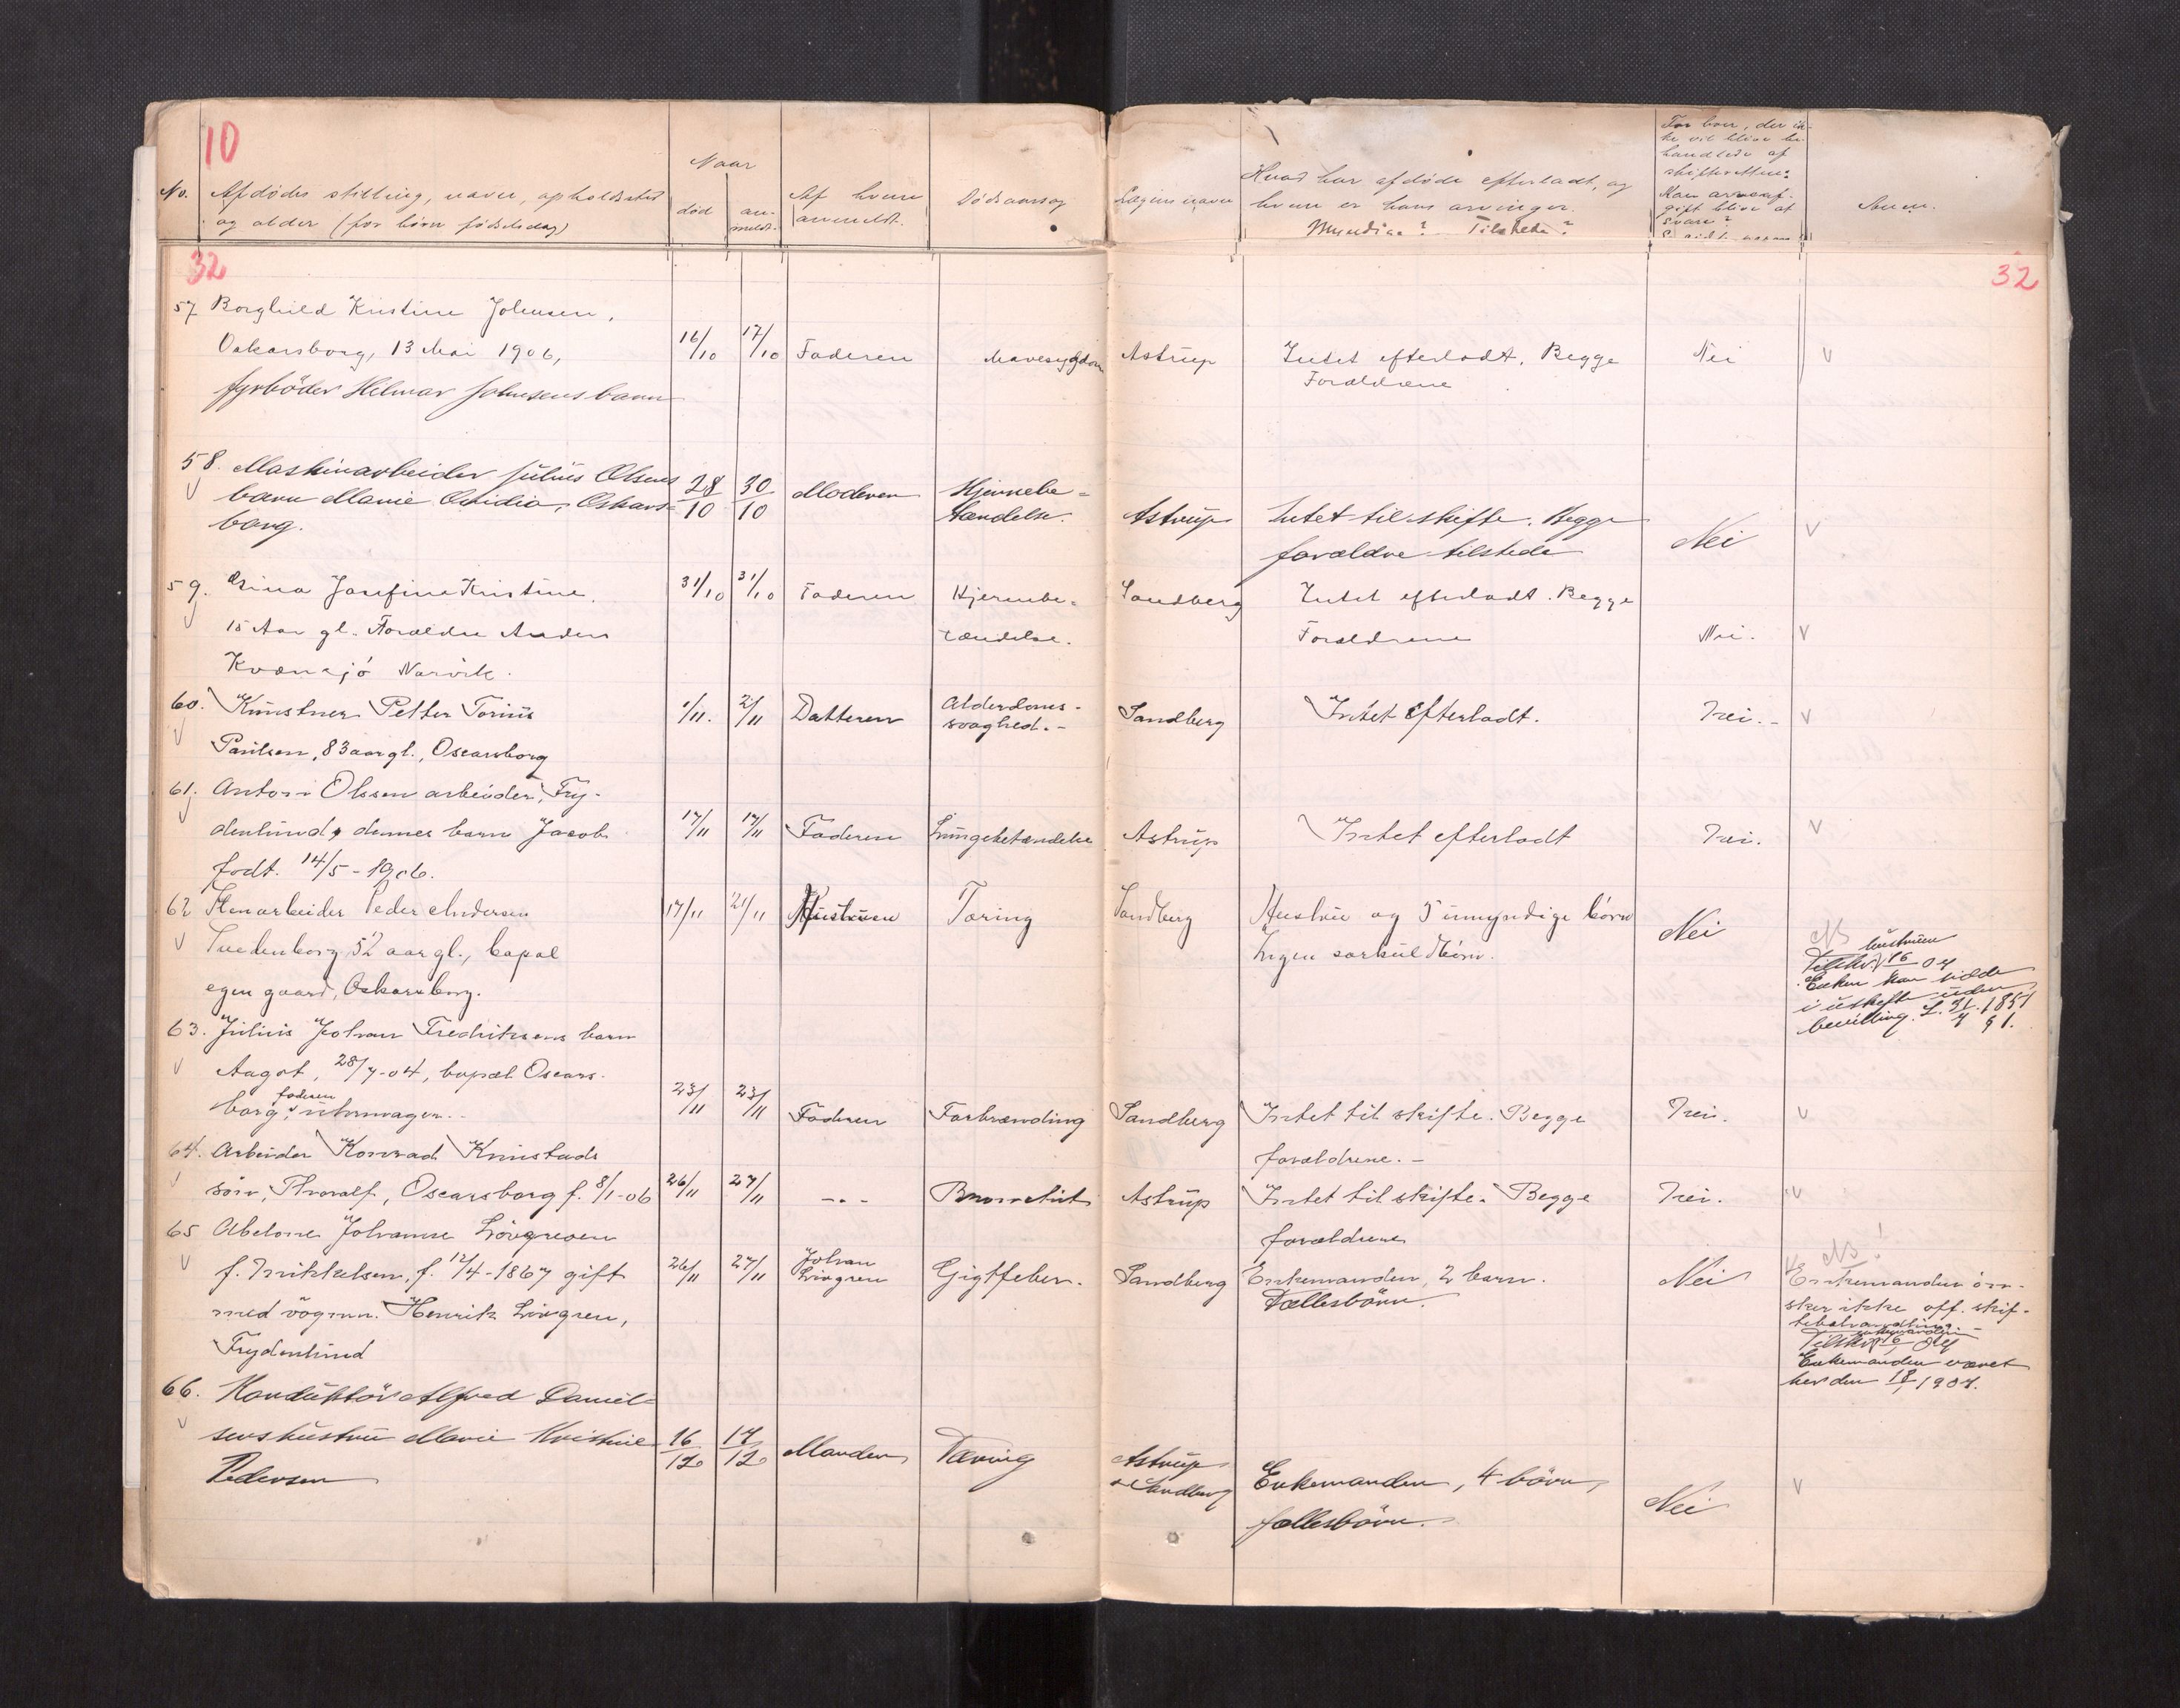 10
No. Afdødes stilling, navn, opholdssted
og alder (for börn fødselsdag)
Naar
död
an-
meldt.
Af hvem
anmeldt.
Dödsaarsag
Lægens navn
Hvad har afdöde efterladt, og
hvem er hans arvinger.
Myndige? Tilstede?
For boer, der ik-
ke vil blive be-
handlede af
skifteretten:
Kan arveaf-
gift blive at
svare?
Anm.
32
32
57 Borghild Kristine Johnsen,
Oskarsborg, 13 Mai 1906,
fyrböder Helmar Johnsens barn
16/10 17/10 Faderen Mavesygdom Astrup Intet efterladt. Begge
Forældrene
Nei V
58. Maskinarbeider Julius Olsens
barn Marie Ovidia, Oskars-
borg.
28/10 30/10 Moderen Hjernebe-
tændelse.
Astrup Intet til skifte. Begge
forældre tilstede
Nei V
59. Josefine Kristine.
15 Aar gl. Forældre Anders
Kvænsjö Narvik.
31/10 31/10 Faderen Hjernebe-
tændelse.
Sandberg Intet efterladt. Begge
Forældrene
Nei. V
60. Kunstner Petter Torius
Paulsen, 83 aar gl., Oscarsborg
1/11. 2/11 Datteren Alderdoms-
svaghed.-
Sandberg Intet Efterladt. Nei.- V
61. Anton Olssen arbeider, Fry-
denlund, dennes barn Jacob
födt. 14/5-1906.
17/11 17/11 Faderen Lungebetændelse Astrup Intet efterladt Nei. V
62 Stenarbeider Peder Andersen
Tuedenborg 52 aar gl., bopæl
egen gaard, Oskarsborg.
17/11 21/11 Hustruen Tæring Sandberg Hustru og 5 umyndige börn
Ingen særkuldbörn.
Nei
NB
hustruen
Tilskr. 16/1 07
Enken kan sidde
i uskifte uden
bevilling. L. 31/7 1851
§ 1.
63. Julius Johan Fredriksens barn
Aagot, 28/7-04, bopæl Oscars-
borg, faderen uhrmager.-
23/11 23/11 Faderen Forbrænding Sandberg Intet til skifte. Begge
forældrene.-
Nei. V
64. Arbeider Konrad Knustads
sön, Thoralf, Oscarsborg f. 8/1-06
26/11 27/11 -"- Bronchit Astrup Intet til skifte. Begge
forældrene
Nei. V
65 Abelone Johanne Lövgreen
f. Mikkelsen, f. 12/4-1867 gift
med vögnm. Henrik Lövgren,
Frydenlund
26/11 27/11 Johan
Lövgren
Gigtfeber. Sandberg Enkemanden, 2 barn.
Fællesbörn.
Nei
NB!
Enkemanden ön-
sker ikke off. skif-
tebehandling
enkemanden
Tilskr. 16/1 07
Enkemanden været
her den 18/1 1907.
66. Konduktör Alfred Daniel-
sens hustru Marie Kristine
Pedersen
16/12 17/12 Manden Tæring Astrup
& Sandberg
Enkemanden, 4 börn,
fællesbörn.
Nei V